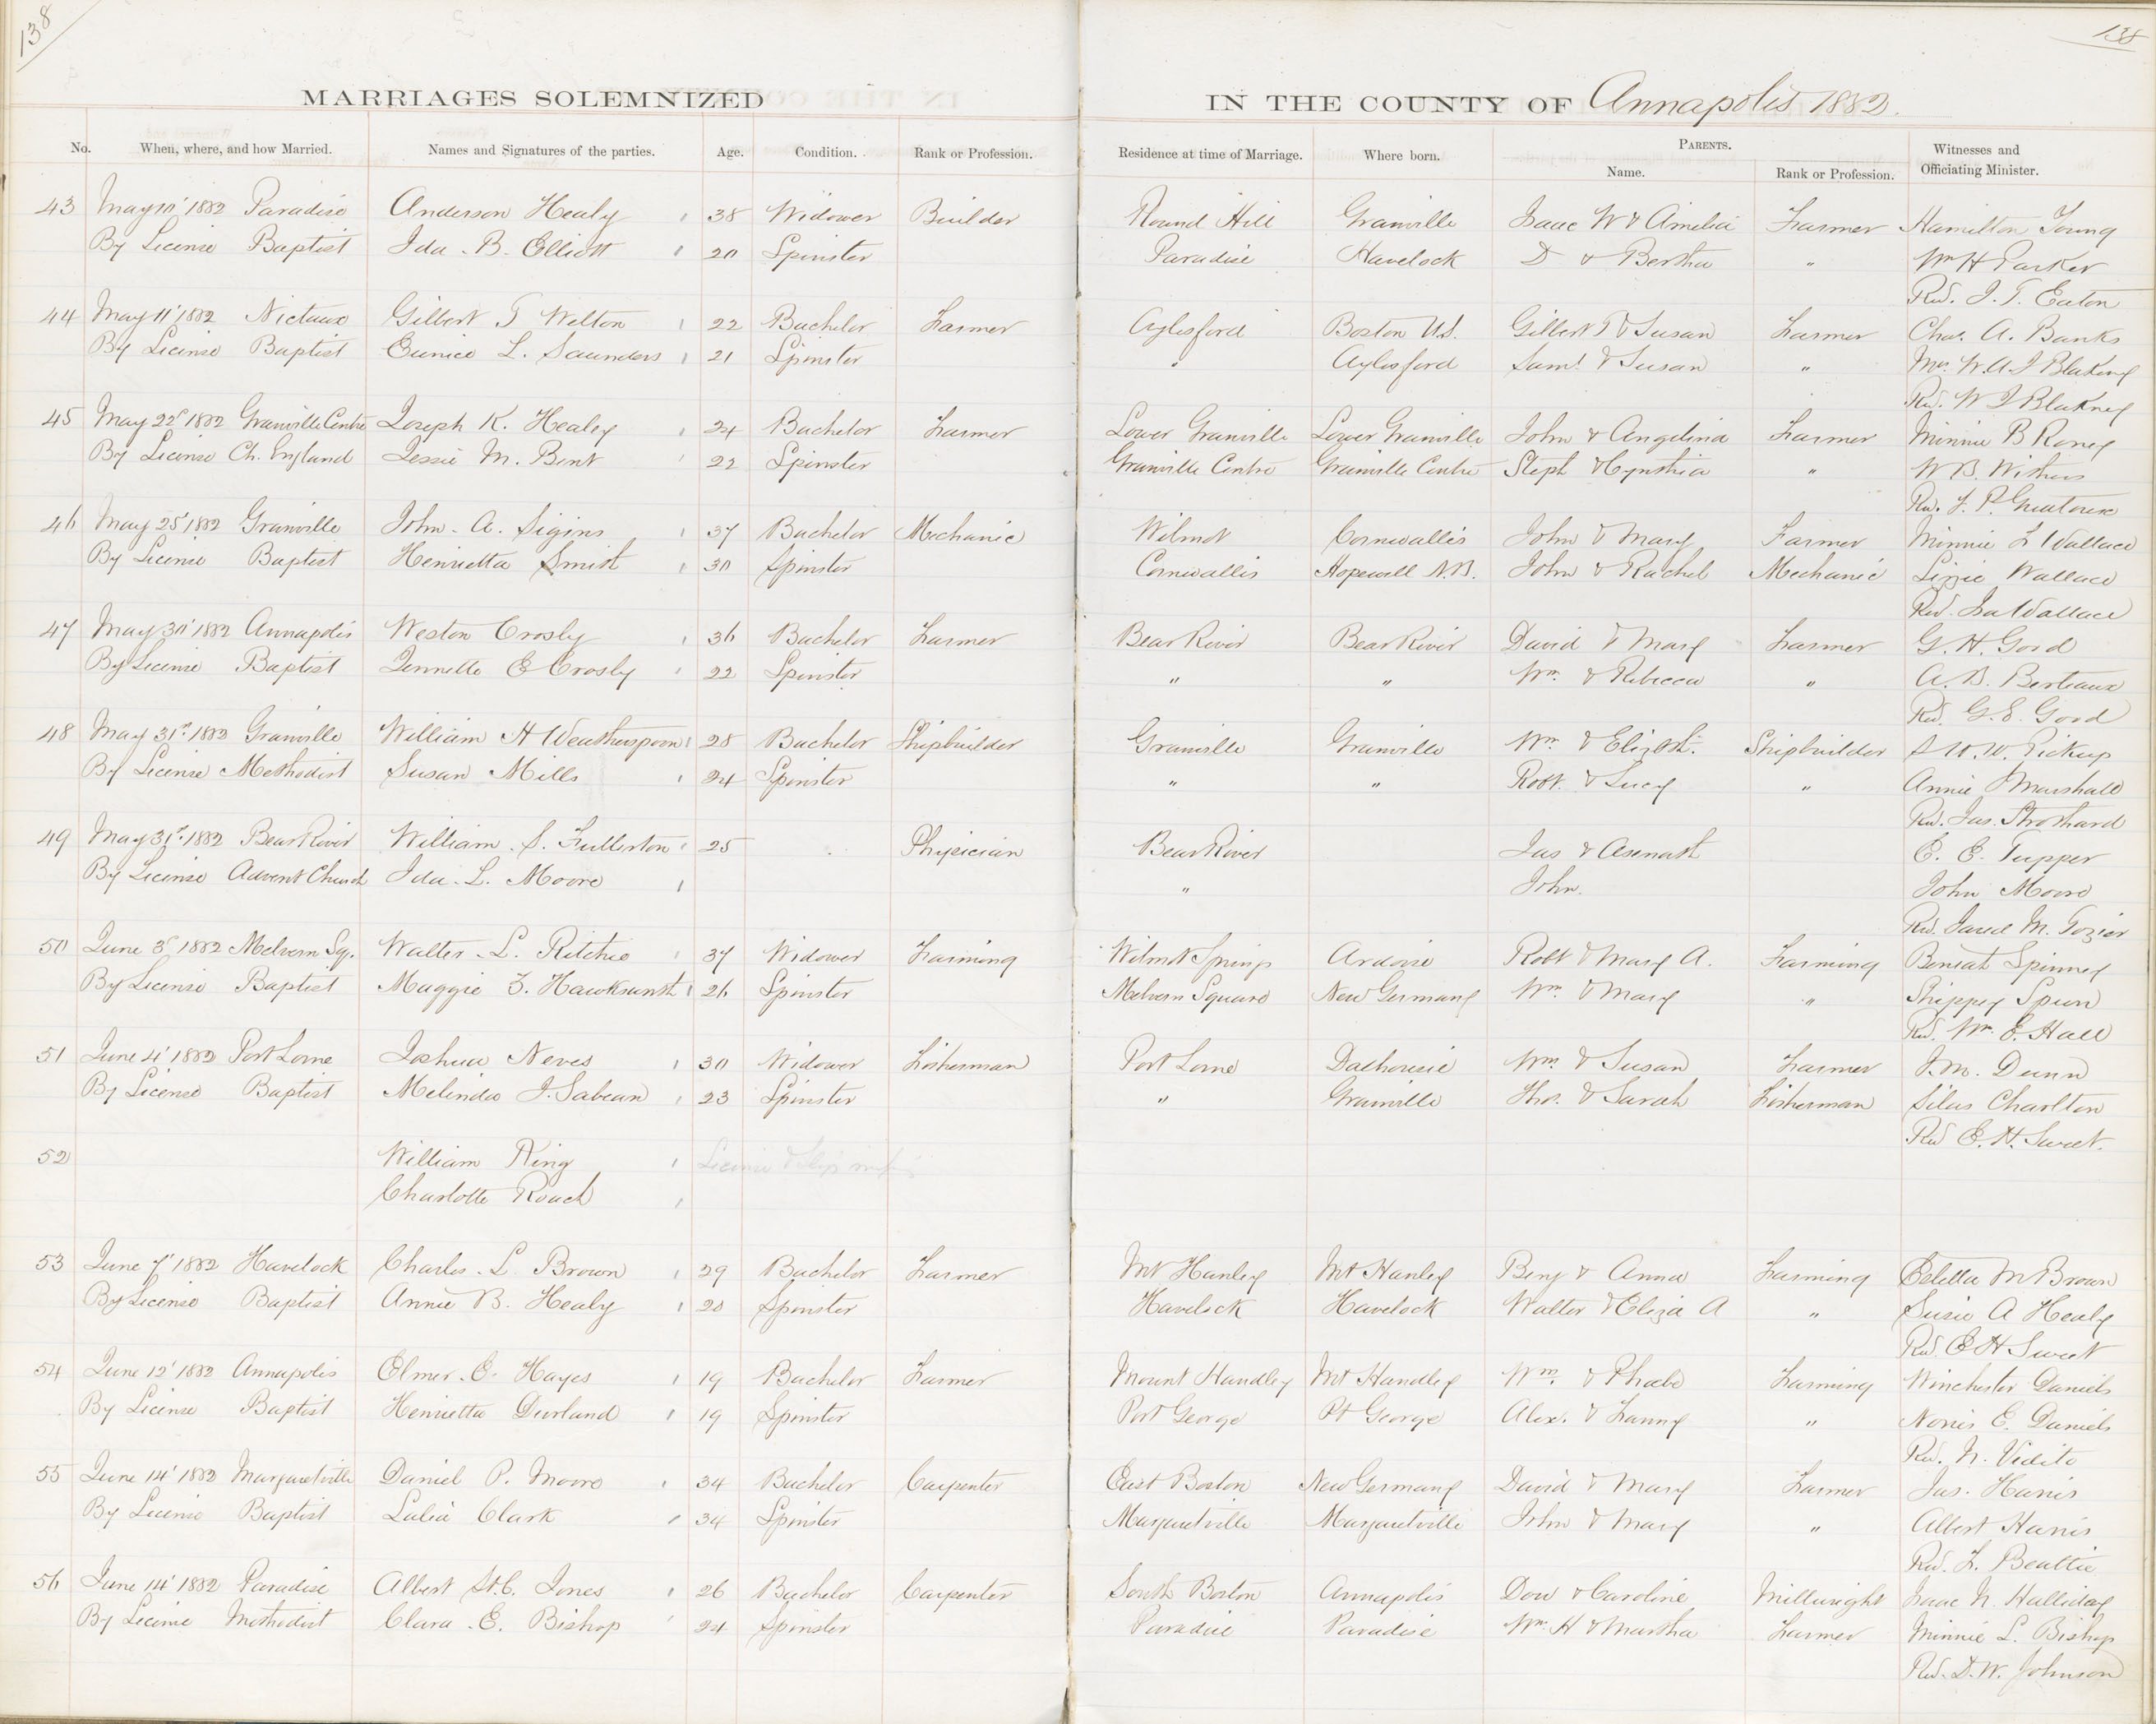 138
138
MARRIAGES SOLEMNIZED IN THE COUNTY OF Annapolis 1882.
No. When, where, and how Married. Names and Signatures of the parties. Age. Condition. Rank or Profession. Residence at time of Marriage. Where born. PARENTS. Name. Rank or Profession. Witnesses and Officiating Minister.
43 May 10' 1882 Paradise Anderson Healy 38 Widower Builder Round Hill Granville Isaac W & Amelia Farmer Hamilton Young
By License Baptist Ida B. Elliott 20 Spinster Paradise Havelock D & Bertha " Wm H Parker
Rev. J. T. Eaton
44 May 11' 1882 Nictaux Gilbert T Welton 22 Bachelor Farmer Aylesford Boston U.S. Gilbert T & Susan Farmer Chas. A. Banks
By License Baptist Eunice L. Saunders 21 Spinster " Aylesford Saml & Susan " Mrs. W. A. J Blakney
Rev. W J Blakney
45 May 22d 1882 Granville Centre Joseph K. Healey 24 Bachelor Farmer Lower Granville Lower Granville John & Angelina Farmer Minnie B Roney
By License Ch. England Jessie M. Bent 22 Spinster Granville Centre Granville Centre Steph & Cynthia " W B. Withers
Rev. F. P. Greatorex
46 May 25' 1882 Granville John A. Sigins 37 Bachelor Mechanic Wilmot Cornwallis John & Mary Farmer Minnie L Wallace
By License Baptist Henrietta Smith 30 Spinster Cornwallis Hopewell N.B. John & Rachel Mechanic Lizzie Wallace
Rev. Isa Wallace
47 May 30' 1882 Annapolis Weston Crosby 36 Bachelor Farmer Bear River Bear River David & Mary Farmer G. H. Good
By License Baptist Jennette E Crosby 22 Spinster " " Wm. & Rebecca " A. B. Berteaux
Rev. G. E. Good
48 May 31st 1882 Granville William H Weatherspoon 28 Bachelor Shipbuilder Granville Granville Wm. & Elizbth. Shipbuilder S W. W. Pickup
By License Methodist Susan Mills 24 Spinster " " Robt. & Lucy " Annie Marshall
Rev. Jas. Strothard
49 May 31st 1882 Bear River William S. Fullerton 25 Physician Bear River Jas & Asenath E. E. Tupper
By License Advent Church Ida L. Moore " John. John Moore
Rev. Jared M. Tozier
50 June 3d 1882 Melvern Sq. Walter L. Ritchie 37 Widower Farming Wilmot Springs Ardoise Robt & Mary A. Farming Beniah Spinney
By License Baptist Maggie Z. Hawksunth 26 Spinster Melvern Square New Germany Wm. & Mary " Shippy Spurr
Rev. Wm. E. Hall
51 June 4' 1882 Port Lorne Joshua Neves 30 Widower Fisherman Port Lorne Dalhousie Wm. & Susan Farmer J. M. Dunn
By License Baptist Melinda J. Sabean 23 Spinster " Granville Thos. & Sarah Fisherman Silas Charlton
Rev E. H. Sweet.
52 William King License & slip
Charlotte Roach
53 June 7' 1882 Havelock Charles L. Brown 29 Bachelor Farmer Mt Hanley Mt Hanley Benj & Anna Farming Eletta M Brown
By License Baptist Annie B. Healy 20 Spinster Havelock Havelock Walter & Eliza A " Susie A Healy
Rev. E H Sweet
54 June 12' 1882 Annapolis Elmer E. Hayes 19 Bachelor Farmer Mount Handley Mt Handley Wm. & Phabe Farming Winchester Daniels
By License Baptist Henrietta Durland 19 Spinster Port George Pt George Alex. & Fanny " Norris E. Daniels
Rev. N. Vidito
55 June 14' 1882 Margaretville Daniel P. Moore 34 Bachelor Carpenter East Boston New Germany David & Mary Farmer Jas. Harris
By License Baptist Lalia Clark 34 Spinster Margaretville Margaretville John & Mary " Albert Harris
Rev. F. Beattie
56 June 14' 1882 Paradise Albert St.C. Jones 26 Bachelor Carpenter South Boston Annapolis Dow & Caroline Millwright Isaac N. Halliday
By License Methodist Clara E. Bishop 24 Spinster Paradise Paradise Wm. H & Martha Farmer Minnie L. Bishop
Rev. D. W. Johnson